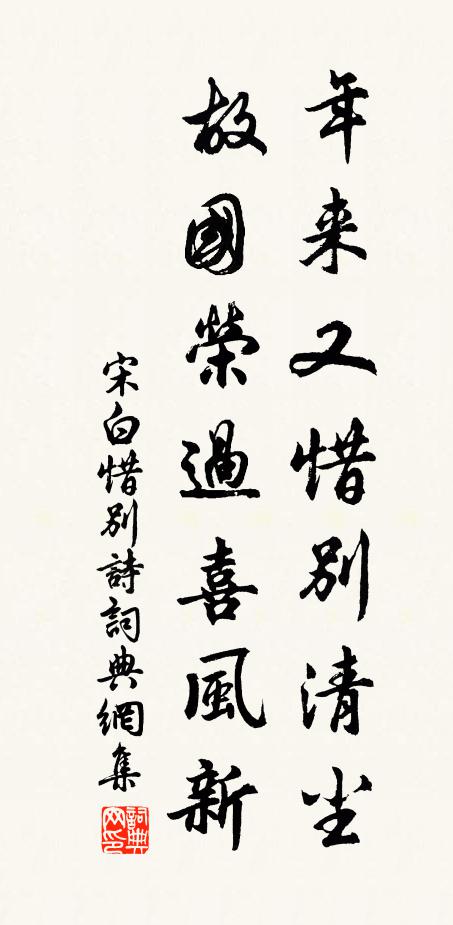 年来又惜别清尘
故國榮過喜風新
宋白惜别詩詞典網集
詞典网印